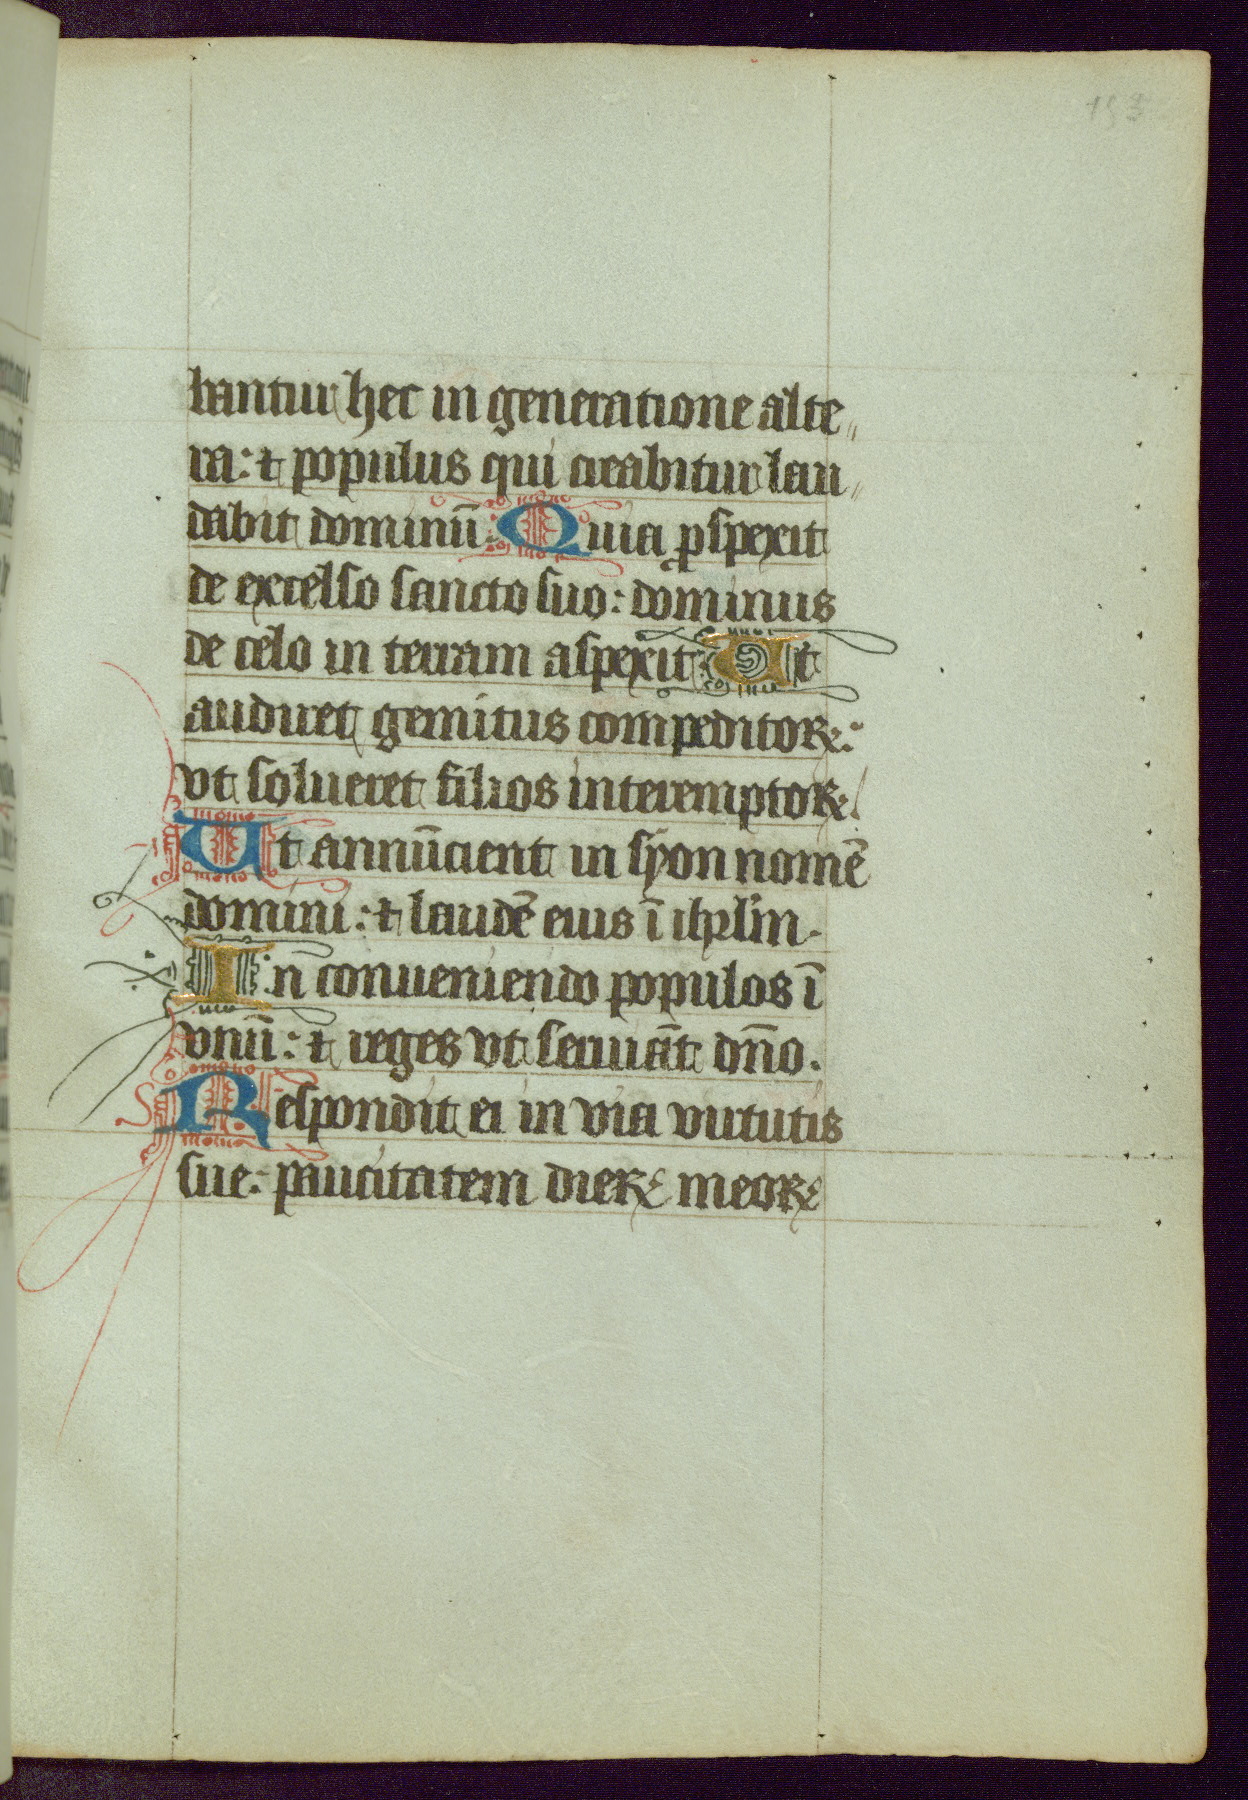 153
bantur hec in generatione alte„
ra: ⁊ populus qui creabitur lau„
dabit dominū. Quia ꝓspexit
de excelso sancto suo: dominus
de celo in terram aspexit. Ut
audiret gemitus compeditoꝝ:
vt solueret filios interemptoꝝ.
Ut annūcient in syon nomē
domini: ⁊ laudē eius ī ihrlm̄.
In conueniendo populos ī
vnū: ⁊ reges vt seruiāt dn̄o.
Respondit ei in via uirtutis
sue: paucitatem dieꝝ meoꝝ